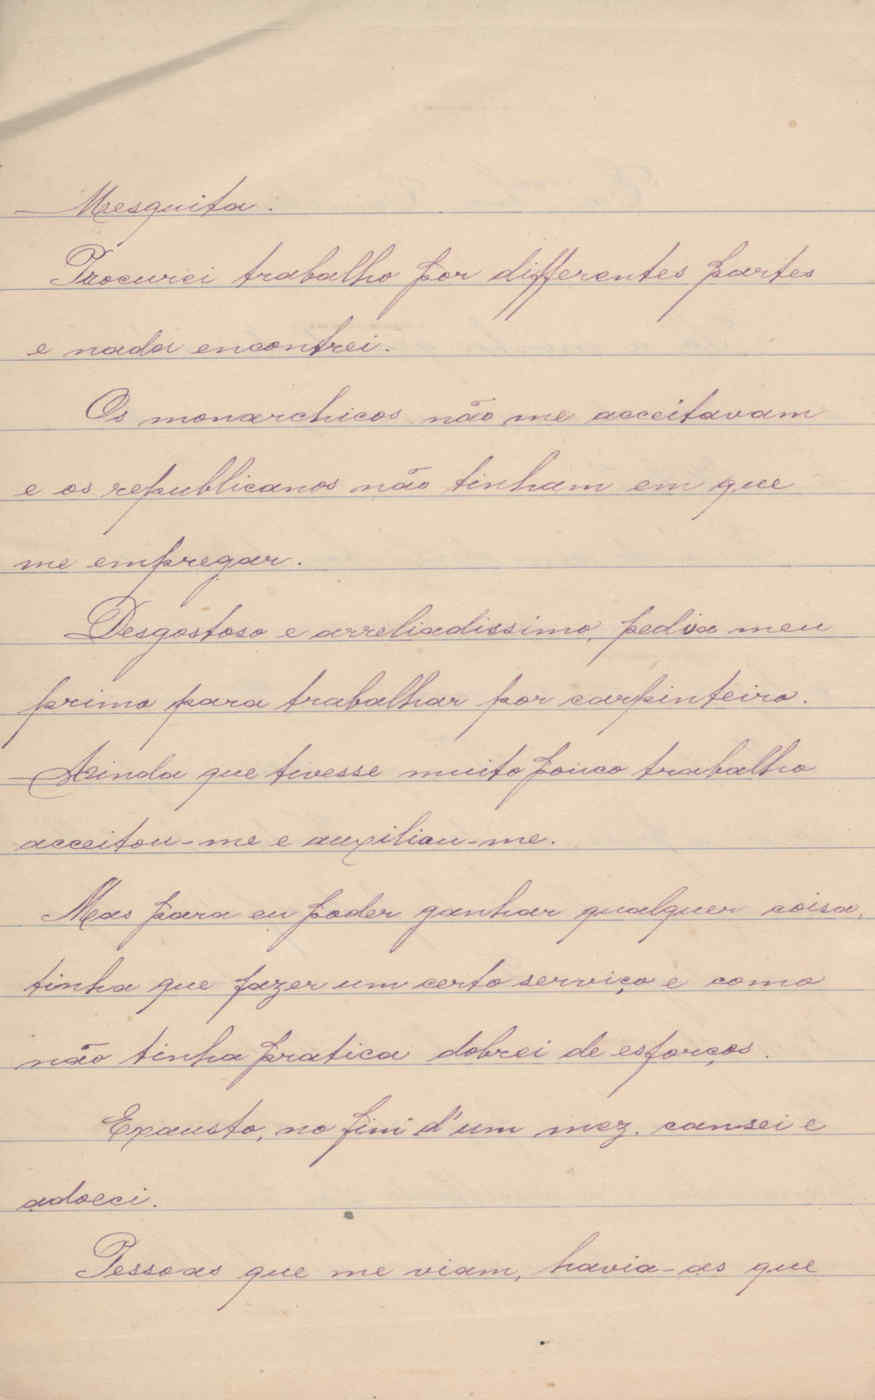 Mesquita.
Procurei trabalho por differentes partes
e nada encontrei.
Os monarchicos não me acceitavam
e os republicanos não tinham em que
me empregar.
Desgostoso e arreliadissimo, pedi a meu
primo para trabalhar por carpinteiro.
Ainda que tivesse muito pouco trabalho
acceitou-me e auxiliou-me.
Mas para eu poder ganhar qualquer coisa,
tinha que fazer um certo serviço e como
não tinha pratica dobrei de esforços.
Exausto, no fim d'um mez. cansei e
adoeci.
Pessoas que me viam, havia-as que